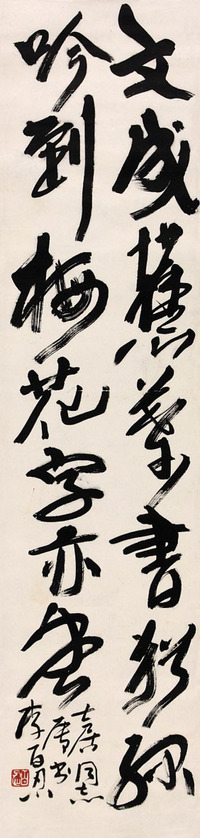 文成蕉叶书犹绿
吟到梅花字亦香
士杰同志
属书
李百忍